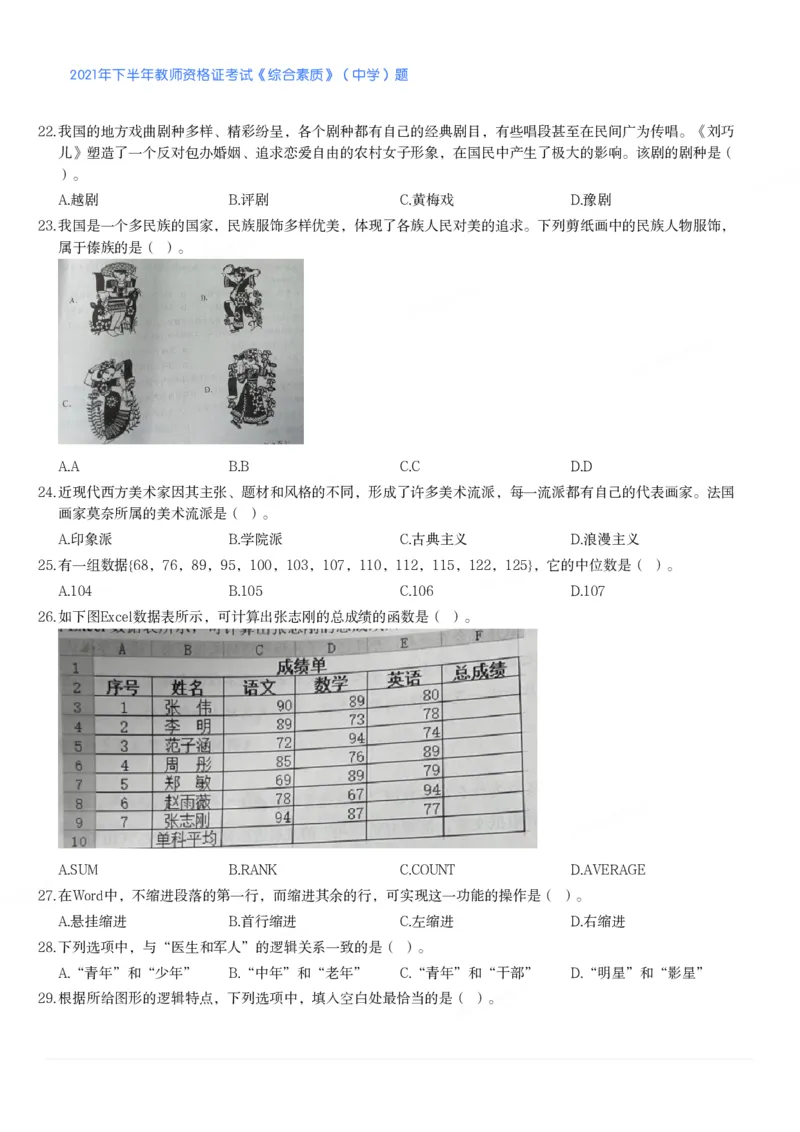 2021年下半年教师资格证考试《综合素质》（中学）题
22.我国的地方戏曲剧种多样、精彩纷呈，各个剧种都有自己的经典剧目，有些唱段甚至在民间广为传唱。《刘巧
儿》塑造了一个反对包办婚姻、追求恋爱自由的农村女子形象，在国民中产生了极大的影响。该剧的剧种是（
）。
A.越剧 B.评剧 C.黄梅戏 D.豫剧
23.我国是一个多民族的国家，民族服饰多样优美，体现了各族人民对美的追求。下列剪纸画中的民族人物服饰，
属于傣族的是（ ）。
A. B.
C. D.
A.A B.B C.C D.D
24.近现代西方美术家因其主张、题材和风格的不同，形成了许多美术流派，每一流派都有自己的代表画家。法国
画家莫奈所属的美术流派是（ ）。
A.印象派 B.学院派 C.古典主义 D.浪漫主义
25.有一组数据{68，76，89，95，100，103，107，110，112，115，122，125}，它的中位数是（ ）。
A.104 B.105 C.106 D.107
26.如下图Excel数据表所示，可计算出张志刚的总成绩的函数是（ ）。
A B C D E F
1 成绩单
2 序号 姓名 语文 数学 英语 总成绩
3 1 张 伟 90 89 80
4 2 李 明 89 73 78
5 3 范子涵 72 94 74
6 4 周 彤 85 76 89
7 5 郑 敏 69 89 79
8 6 赵雨薇 78 67 94
9 7 张志刚 94 87 77
10 单科平均
A.SUM B.RANK C.COUNT D.AVERAGE
27.在Word中，不缩进段落的第一行，而缩进其余的行，可实现这一功能的操作是（ ）。
A.悬挂缩进 B.首行缩进 C.左缩进 D.右缩进
28.下列选项中，与“医生和军人”的逻辑关系一致的是（ ）。
A.“青年”和“少年” B.“中年”和“老年” C.“青年”和“干部” D.“明星”和“影星”
29.根据所给图形的逻辑特点，下列选项中，填入空白处最恰当的是（ ）。